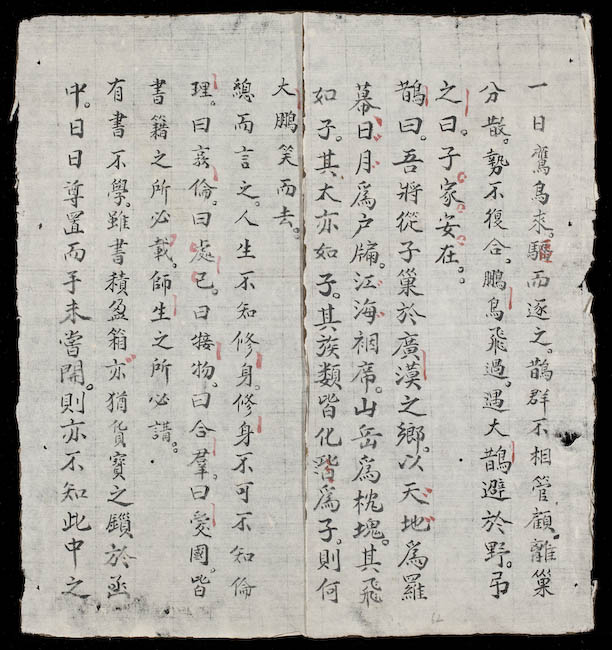 一日鷹鳥來。驅而逐之。鵲群不相管顧。離巢
分散。勢不復合。鵬鳥飛過。遇大鵲避於野。弔
之曰。子家安在。
鵲曰。吾將從子巢於廣漠之鄉。以天地爲羅
幕。日月爲戶牖。江海裀席。山岳爲枕塊。其飛
如子。其大亦如子。其族類皆化皆爲子。則何
大鵬笑而去。
總而言之。人生不知修身。修身不可不知倫
理。曰彝倫。曰處己。曰接物。曰合羣。曰愛國。皆
書籍之所必載。師生之所必講。
有書不學。雖書積盈箱。亦猶貨寶之鎖於函
中。日日尊置而手未嘗開。則亦不知此中之